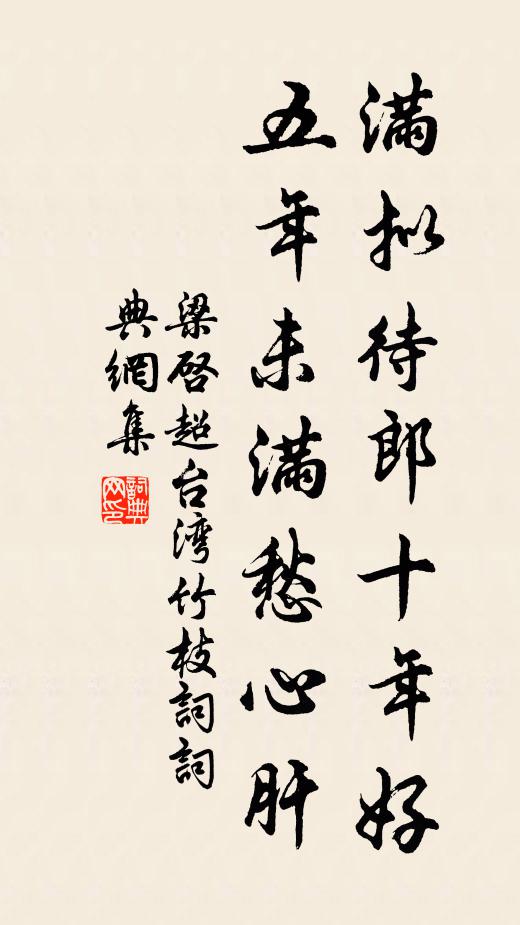 滿拟待郎十年好
五年未滿愁心肝
梁启超台湾竹枝詞詞
典網集
詞典
网印